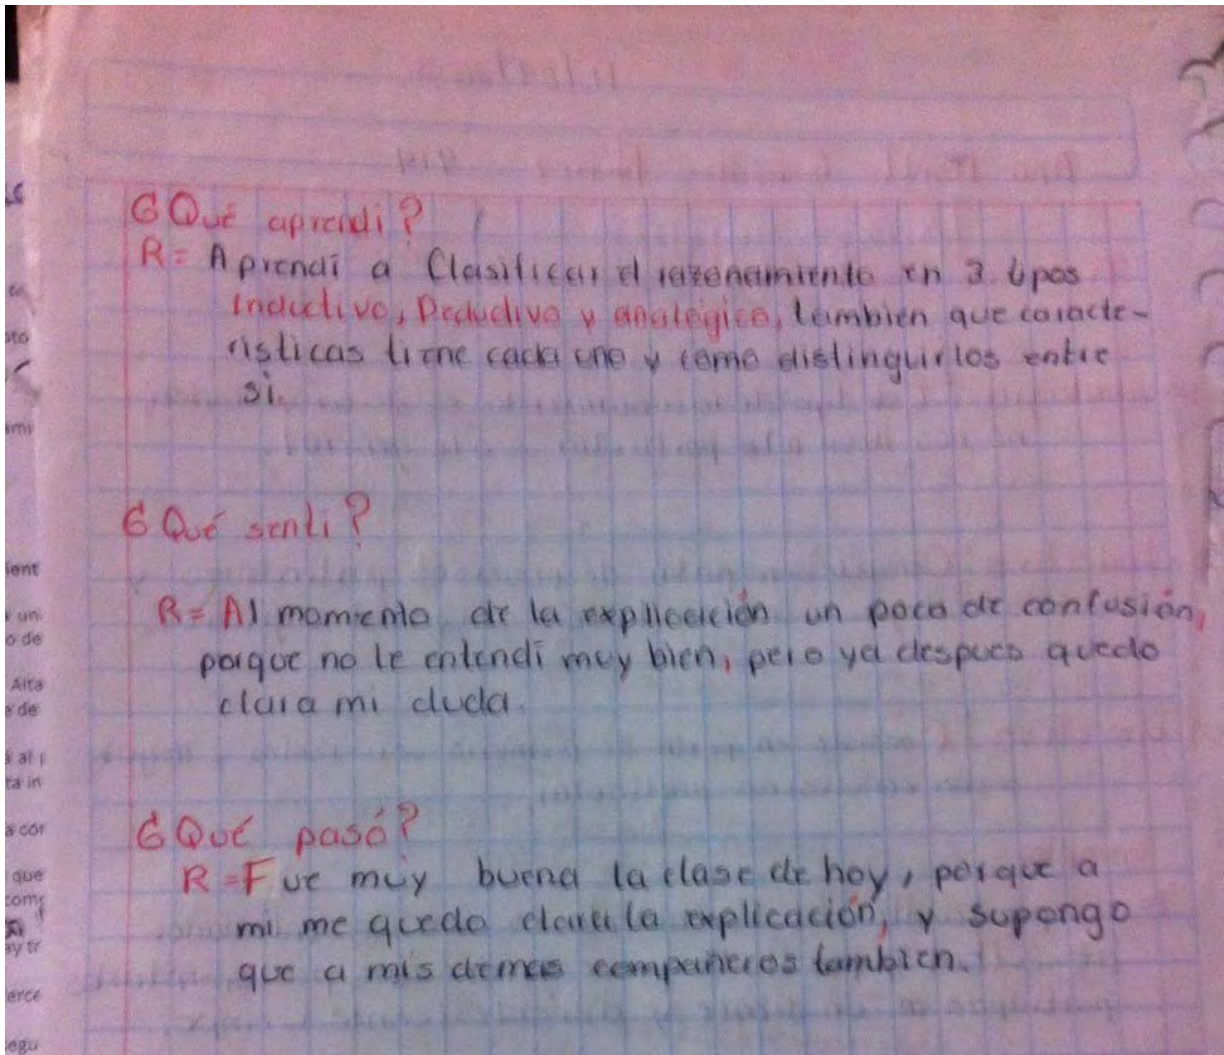 ¿Qué aprendi?
R= Aprendí a Clasificar el razonamiento en 3 tipos
Inductivo, Deductivo y analógico, tambien que caracte-
risticas tiene cada uno y como distinguirlos entre
si.
¿Qué senti?
R= Al momento de la explicación un poco de confusión,
porque no le entendí muy bien, pero ya despues quedo
clara mi duda.
¿Qué pasó?
R=Fue muy buena la clase de hoy, porque a
mi me quedo clara la explicación, y supongo
que a mis demas compañeros tambien.